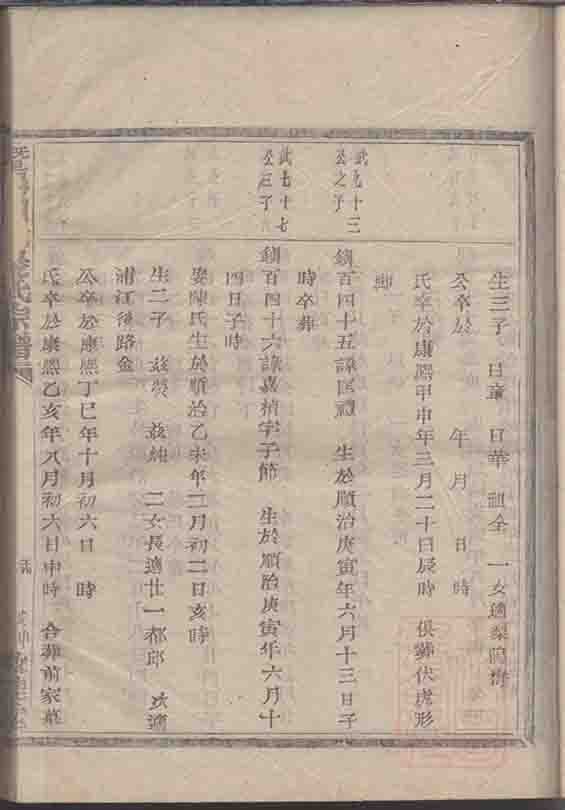 生三子 日童 日華 祖全 一女適梨
公卒於 年 月 日 時
氏卒於康熙甲申年三月二十日辰時 俱葬伏虎形
武七十三
公之子
鎮百四十五諱匡禮 生於順治庚寅年六月十三日子
時卒葬
武七十七
公三子
鎮百四十六諱嘉楨字子節 生於順治庚寅年六月十
四日子時
娶陳氏生於順治乙未年二月初二日亥時
生二子 茲 茲純 二女長適廿一都邱 次適
浦江後路金
公卒於康熙丁巳年十月初六日 時
氏卒於康熙乙亥年八月初六日申時 合葬前家
氏宗譜